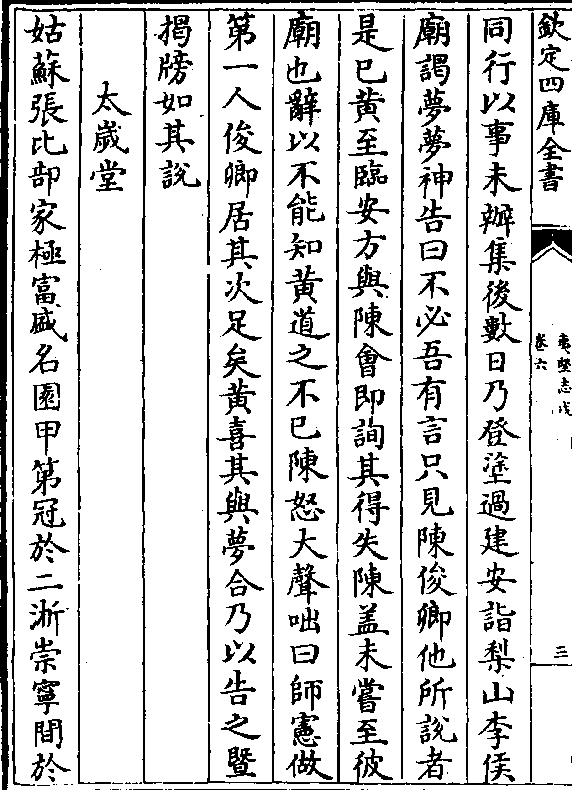 欽定四庫全書
夷堅志戊
卷六
三
同行以事未辦集後數日乃登塗過建安詣梨山李侯
廟謁夢夢神告曰不必吾有言只見陳俊卿他所說者
是已黃至臨安方與陳會即詢其得失陳盖未嘗至彼
廟也辭以不能知黃道之不已陳怒大聲咄曰師憲做
第一人俊卿居其次足矣黃喜其與夢合乃以告之暨
揭牓如其說
太歲堂
姑蘇張比部家極富盛名園甲第冠於二浙崇寧間於